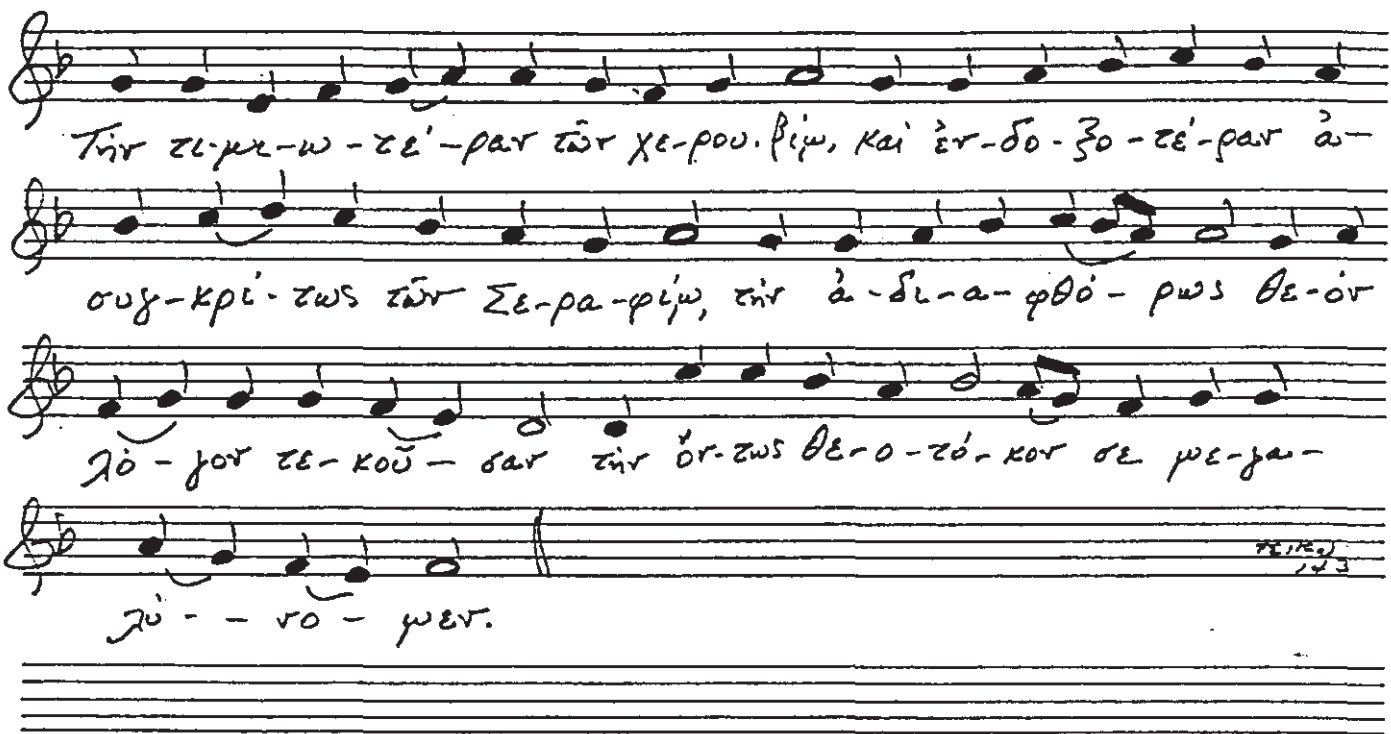 Τὴν τι-μι-ω-τέ-ραν τῶν χε-ρου-βίμ, καὶ ἐν-δο-ξο-τέ-ραν ἀ-
συγ-κρί-τως τῶν Σε-ρα-φίμ, τὴν ἀ-δι-α-φθό-ρως Θε-ὸν
λό-γον τε-κοῦ-σαν τὴν ὄν-τως Θε-ο-τό-κον σὲ με-γα-
λύ--νο-μεν.